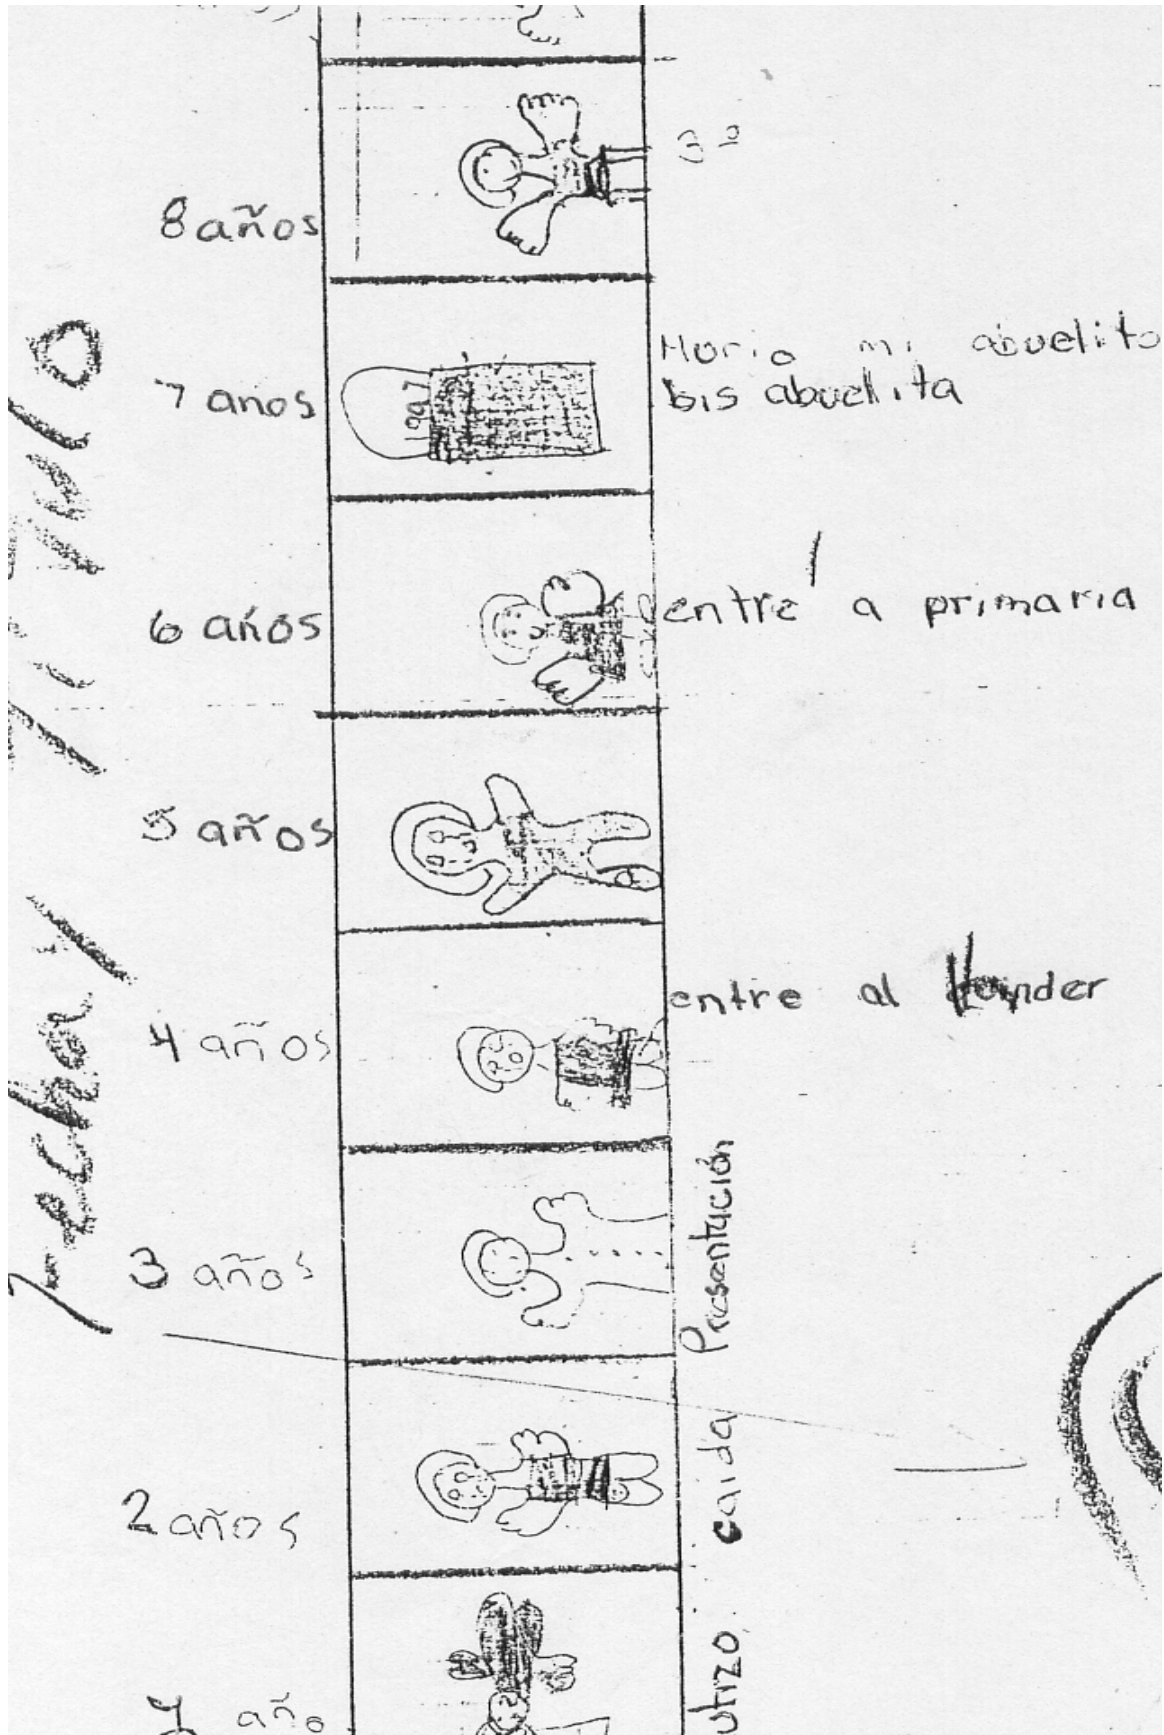 8 años
3º
7 años
1997
Murio mi abuelito
bis abuelita
6 años
entre' a primaria
5 años
4 años
entre al kinder
3 años
Presentución
2 años
caida
1 año
utizo